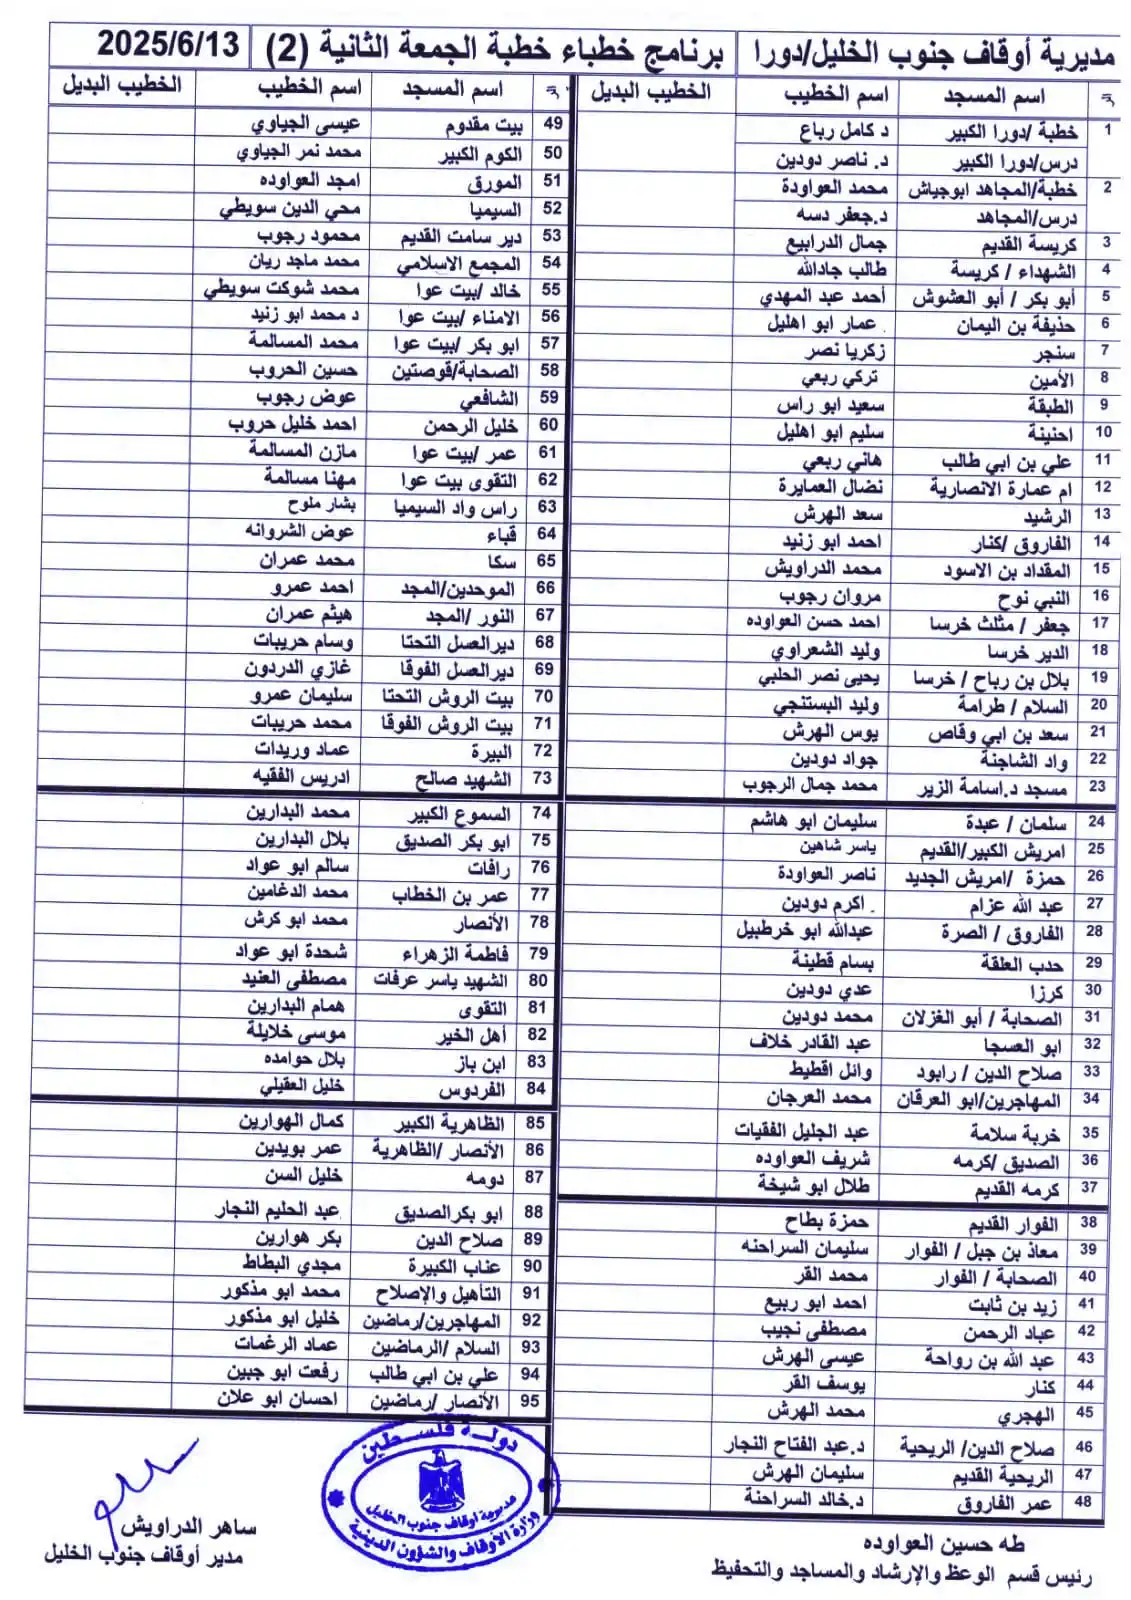 مديرية أوقاف جنوب الخليل/دورا برنامج خطباء خطبة الجمعة الثانية (2) 2025/6/13
اسم المسجد اسم الخطيب الخطيب البديل
1 خطبة /دورا الكبير د كامل رباع
درس/دورا الكبير د. ناصر دودين
2 خطبة/المجاهد ابوجياش محمد العواودة
درس/المجاهد د.جعفر دسه
3 كريسة القديم جمال الدرابيع
4 الشهداء / كريسة طالب جادالله
5 أبو بكر / أبو العشوش أحمد عبد المهدي
6 حذيفة بن اليمان عمار ابو اهليل
7 سنجر زكريا نصر
8 الأمين تركي ربعي
9 الطبقة سعيد ابو راس
10 احنينة سليم ابو اهليل
11 علي بن ابي طالب هاني ربعي
12 ام عمارة الانصارية نضال العمايرة
13 الرشيد سعد الهرش
14 الفاروق /كنار احمد ابو زنيد
15 المقداد بن الاسود محمد الدراويش
16 النبي نوح مروان رجوب
17 جعفر / مثلث خرسا احمد حسن العواوده
18 الدير خرسا وليد الشعراوي
19 بلال بن رباح / خرسا يحيى نصر الحلبي
20 السلام / طرامة وليد البستنجي
21 سعد بن ابي وقاص يوس الهرش
22 واد الشاجنة جواد دودين
23 مسجد د.اسامة الزير محمد جمال الرجوب
24 سلمان / عبدة سليمان ابو هاشم
25 امريش الكبير/القديم ياسر شاهين
26 حمزة /امريش الجديد ناصر العواودة
27 عبد الله عزام . اكرم دودين
28 الفاروق / الصرة عبدالله ابو خرطبيل
29 حدب العلقة بسام قطينة
30 كرزا عدي دودين
31 الصحابة / أبو الغزلان محمد دودين
32 ابو العسجا عبد القادر خلاف
33 صلاح الدين / رابود وائل اقطيط
34 المهاجرين/ابو العرقان محمد العرجان
35 خربة سلامة عبد الجليل الفقيات
36 الصديق /كرمه شريف العواوده
37 كرمه القديم طلال ابو شيخة
38 الفوار القديم حمزة بطاح
39 معاذ بن جبل / الفوار سليمان السراحنه
40 الصحابة / الفوار محمد القر
41 زيد بن ثابت احمد ابو ربيع
42 عباد الرحمن مصطفى نجيب
43 عبد الله بن رواحة عيسى الهرش
44 كنار يوسف القر
45 الهجري محمد الهرش
46 صلاح الدين/ الريحية د.عبد الفتاح النجار
47 الريحية القديم سليمان الهرش
48 عمر الفاروق د.خالد السراحنة
اسم المسجد اسم الخطيب الخطيب البديل
49 بيت مقدوم عيسى الجياوي
50 الكوم الكبير محمد نمر الجياوي
51 المورق امجد العواوده
52 السيميا محي الدين سويطي
53 دير سامت القديم محمود رجوب
54 المجمع الاسلامي محمد ماجد ريان
55 خالد /بيت عوا محمد شوكت سويطي
56 الامناء /بيت عوا د محمد ابو زنيد
57 ابو بكر /بيت عوا محمد المسالمة
58 الصحابة/قوصتين حسين الحروب
59 الشافعي عوض رجوب
60 خليل الرحمن احمد خليل حروب
61 عمر /بيت عوا مازن المسالمة
62 التقوى بيت عوا مهنا مسالمة
63 راس واد السيميا بشار ملوح
64 قباء عوض الشروانه
65 سكا محمد عمران
66 الموحدين/المجد احمد عمرو
67 النور /المجد هيثم عمران
68 ديرالعسل التحتا وسام حريبات
69 ديرالعسل الفوقا غازي الدردون
70 بيت الروش التحتا سليمان عمرو
71 بيت الروش الفوقا محمد حريبات
72 البيرة عماد وريدات
73 الشهيد صالح ادريس الفقيه
74 السموع الكبير محمد البدارين
75 ابو بكر الصديق بلال البدارين
76 رافات سالم ابو عواد
77 عمر بن الخطاب محمد الدغامين
78 الأنصار محمد ابو كرش
79 فاطمة الزهراء شحدة ابو عواد
80 الشهيد ياسر عرفات مصطفى العنيد
81 التقوى همام البدارين
82 أهل الخير موسى خلايلة
83 ابن باز بلال حوامده
84 الفردوس خليل العقيلي
85 الظاهرية الكبير كمال الهوارين
86 الأنصار /الظاهرية عمر بويدين
87 دومه خليل السن
88 ابو بكرالصديق عبد الحليم النجار
89 صلاح الدين بكر هوارين
90 عناب الكبيرة مجدي البطاط
91 التأهيل والإصلاح محمد ابو مذكور
92 المهاجرين/رماضين خليل ابو مذكور
93 السلام /الرماضين عماد الرغمات
94 علي بن ابي طالب رفعت ابو جبين
95 الأنصار /رماضين احسان ابو علان
دولة فلسطين
مديرية أوقاف جنوب الخليل
وزارة الأوقاف والشؤون الدينية
طه حسين العواوده
رئيس قسم الوعظ والإرشاد والمساجد والتحفيظ
ساهر الدراويش
مدير أوقاف جنوب الخليل